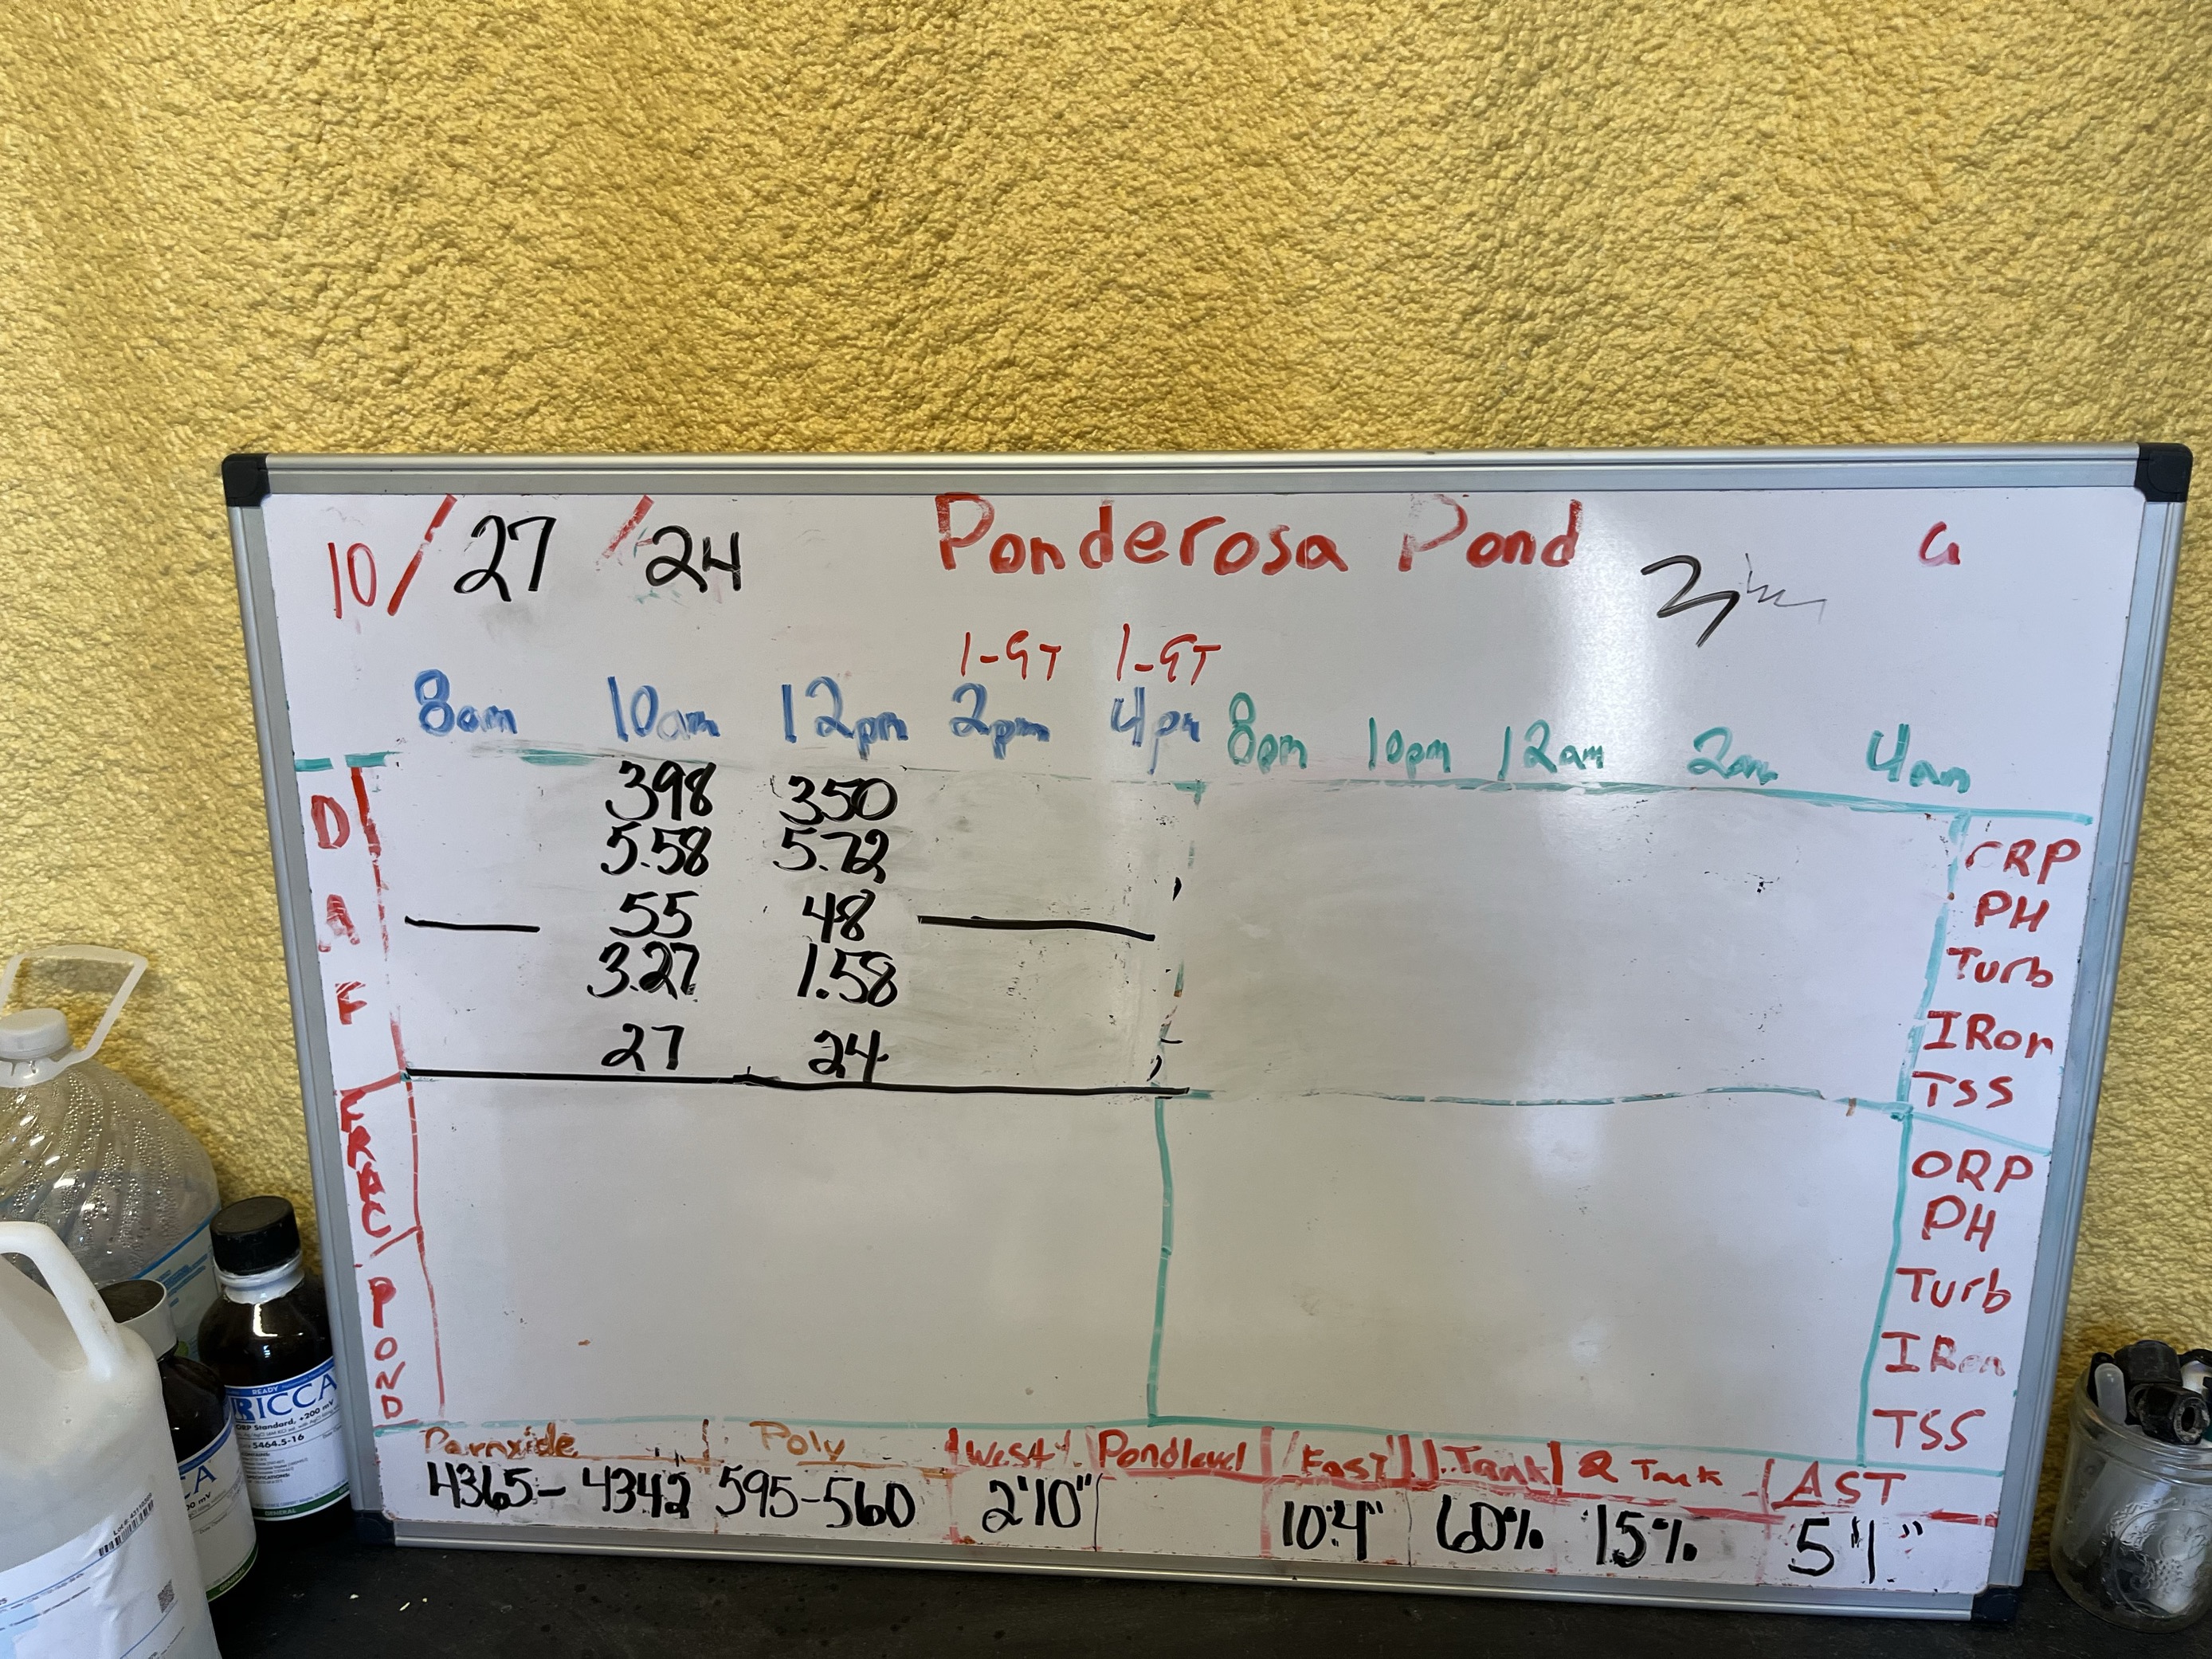 10/27/24 Ponderosa Pond G
1-GT 1-GT
8am 10am 12pm 2pm 4pm 8pm 10pm 12am 2am 4am
D A F
398 350 ORP
5.58 5.72 PH
— 55 48 — Turb
3.27 1.58 IRon
27 24 TSS
FRAC POND
ORP
PH
Turb
IRon
TSS
Poly West Pond level East 1. Tank 2 Tank AST
4365-4342 595-560 2'10" 10'4" 60% 15% 5'1"
READY
RICCA
ORP Standard, +200 mV
5464.5-16
GENERAL